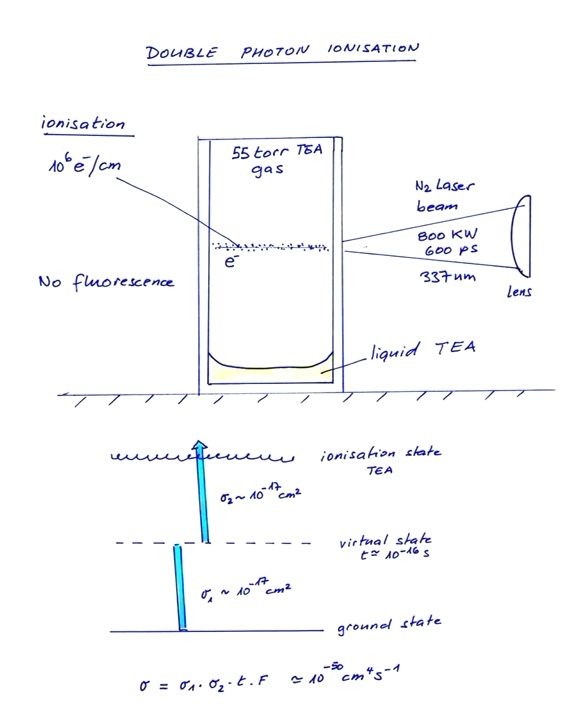 DOUBLE PHOTON IONISATION
ionisation
10⁶ e⁻/cm
55 torr TEA
gas
N₂ Laser
beam
800 KW
600 ps
337 nm
Lens
e⁻
No fluorescence
liquid TEA
ionisation state
TEA
σ₂ ~ 10⁻¹⁷ cm²
virtual state
t ≃ 10⁻¹⁶ s
σ₁ ~ 10⁻¹⁷ cm²
ground state
σ = σ₁ . σ₂ . t . F ≃ 10⁻⁵⁰ cm⁴ s⁻¹